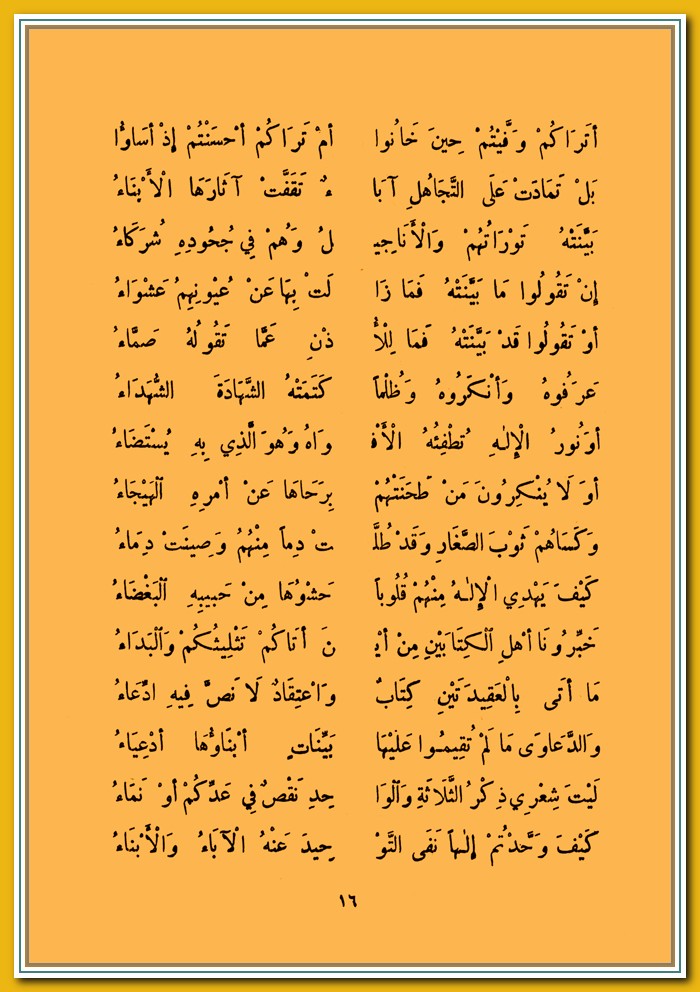 أَتَرَاكُمْ وَفَّيْتُمْ حِينَ خَانُوا أَمْ تَرَاكُمْ أَحْسَنْتُمْ إِذْ أَسَاؤُا
بَلْ تَمَادَتْ عَلَى التَّجَاهُلِ آبَا ءٌ تَقَفَّتْ آثَارَهَا الْأَبْنَاءُ
بَيَّنَتْهُ تَوْرَاتُهُمْ وَالْأَنَاجِيـ لُ وَهُمْ فِي جُحُودِهِ شُرَكَاءُ
إِنْ تَقُولُوا مَا بَيَّنَتْهُ فَمَا زَا لَتْ بِهَا عَنْ عُيُونِهِمْ عَشْوَاءُ
أَوْ تَقُولُوا قَدْ بَيَّنَتْهُ فَمَا لِلْأُ ذْنِ عَمَّا تَقُولُهُ صَمَّاءُ
عَرَفُوهُ وَأَنْكَرُوهُ وَظُلْماً كَتَمَتْهُ الشَّهَادَةَ الشُّهَدَاءُ
أَوَنُورُ الْإِلٰهِ تُطْفِئُهُ الْأَفْـ وَاهُ وَهُوَ الَّذِي بِهِ يُسْتَضَاءُ
أَوَ لَا يُنْكِرُونَ مَنْ طَحَنَتْهُمْ بِرَحَاهَا عَنْ أَمْرِهِ الْهَيْجَاءُ
وَكَسَاهُمْ ثَوْبَ الصَّغَارِ وَقَدْ طُلَّـ تْ دِماً مِنْهُمُ وَصِينَتْ دِمَاءُ
كَيْفَ يَهْدِي الْإِلٰهُ مِنْهُمْ قُلُوباً حَشْوُهَا مِنْ حَبِيبِهِ الْبَغْضَاءُ
خَبِّرُونَا أَهْلَ الْكِتَابَيْنِ مِنْ أَيْـ نَ أَتَاكُمْ تَثْلِيثُكُمْ وَالْبَدَاءُ
مَا أَتَى بِالْعَقِيدَتَيْنِ كِتَابٌ وَاعْتِقَادٌ لَا نَصَّ فِيهِ ادِّعَاءُ
وَالدَّعَاوَى مَا لَمْ تُقِيمُوا عَلَيْهَا بَيِّنَاتٍ أَبْنَاؤُهَا أَدْعِيَاءُ
لَيْتَ شِعْرِي ذِكْرُ الثَّلَاثَةِ وَالْوَا حِدِ نَقْصٌ فِي عَدِّكُمْ أَوْ نَمَاءُ
كَيْفَ وَحَّدْتُمْ إِلٰهاً نَفَى التَّوْ حِيدَ عَنْهُ الْآبَاءُ وَالْأَبْنَاءُ
١٦